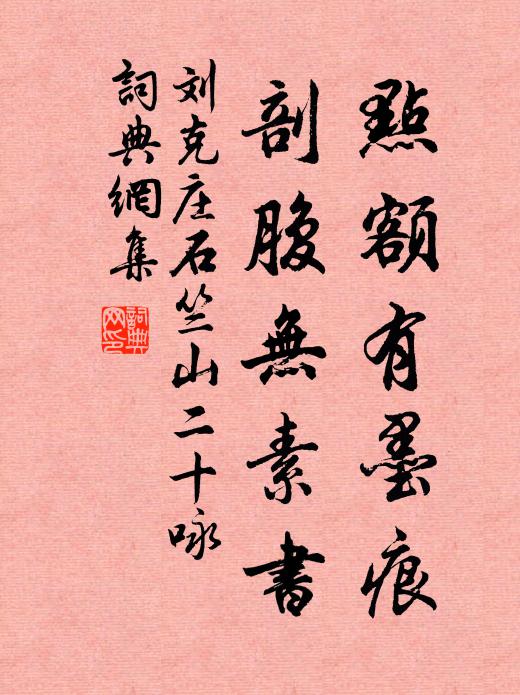 點額有墨痕
剖腹無素書
刘克庄石竺山二十咏
詞典網集
詞典
网印